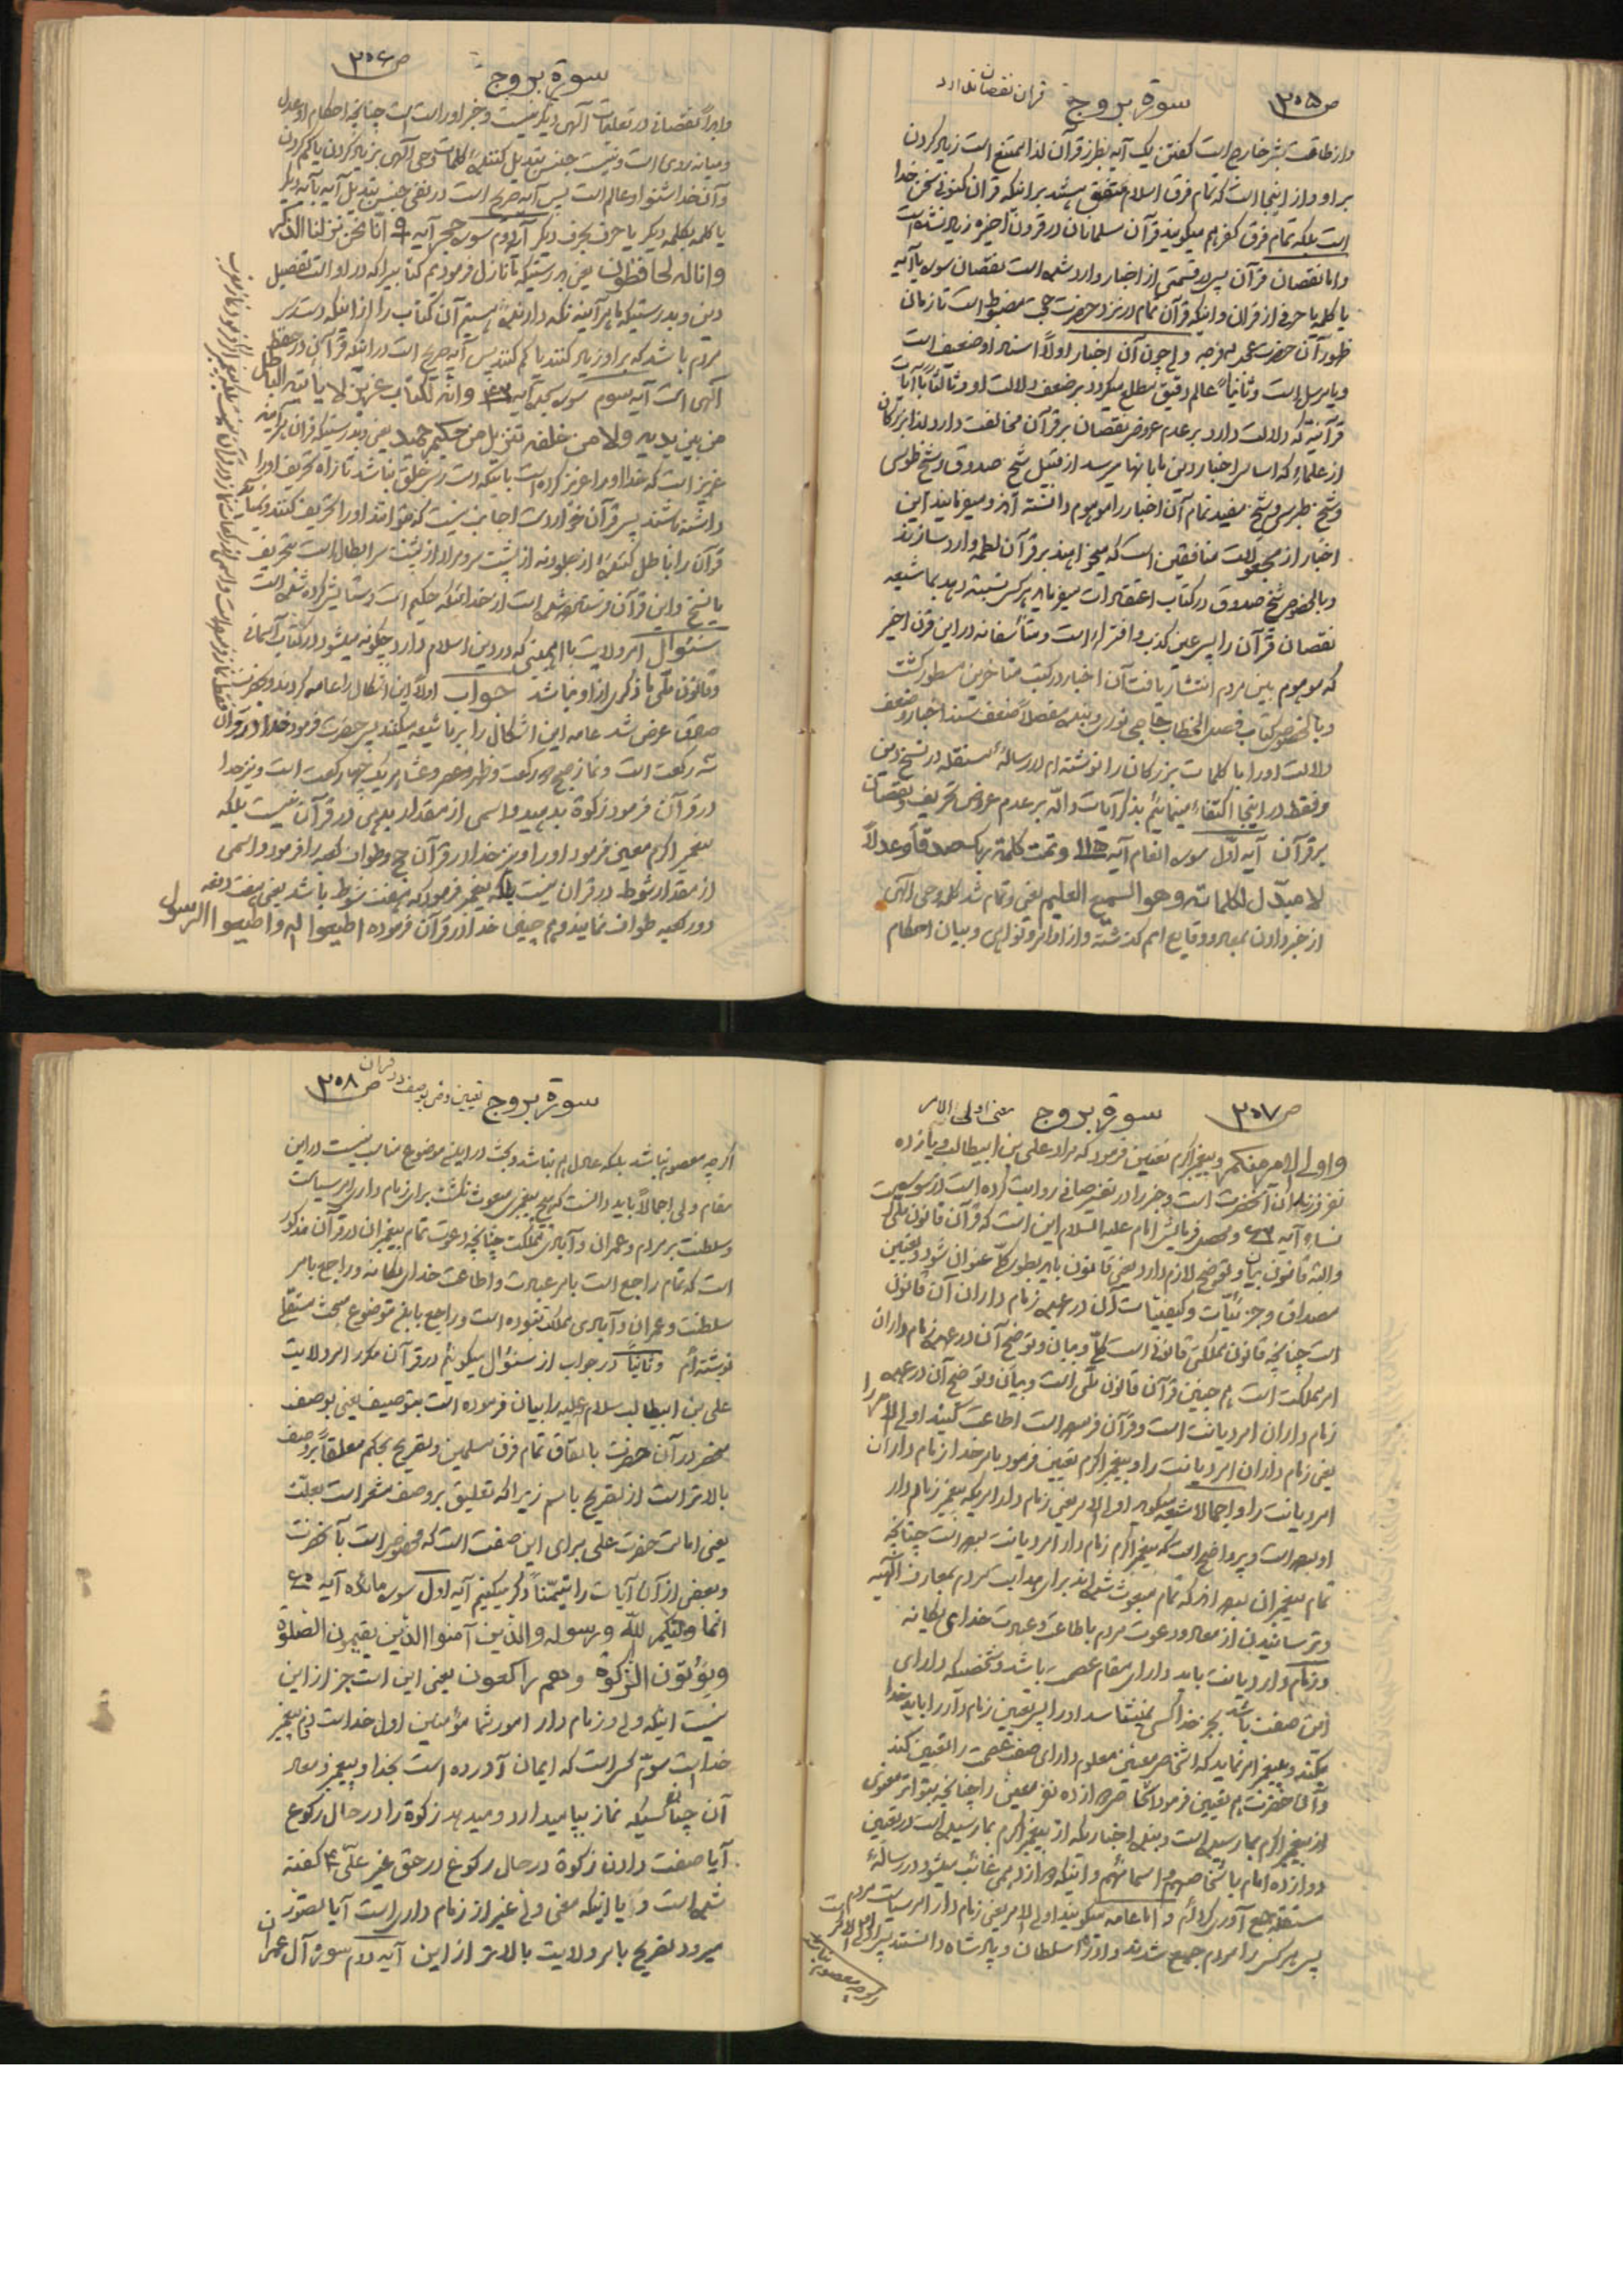 ص ۳۰۵ سورة بروج قرآن نقصان ندارد
و از طاقت بشر خارج است گفتن یک آیه بطرز قرآن لذا ممتنع است زیاد کردن
بر او و از اینجا است که تمام فرق اسلام متفق هستند بر اینکه قرآن کنونی سخن خدا
است بلکه تمام فرق کفر هم میگویند قرآن مسلمانان در قرون اخیره زیاد نشده است
و اما نقصان قرآن پس در قسمتی از اخبار وارد شده است نقصان سوره یا آیه
یا کلمه یا حرفی از قرآن و اینکه قرآن تمام در نزد حضرت حجت مضبوط است تا زمان
ظهور آن حضرت عجل فرجه و چون آن اخبار اولاً اسناد او ضعیف است
و یا مرسل است و ثانیاً عالم دقیق مطلع میگردد بر ضعف دلالت او و ثالثاً با آیات
قرآنیه که دلالت دارد بر عدم عروض نقصان بر قرآن مخالفت دارد لذا بزرگان
از علماء که اساس اخبار دین با بآنها میرسد از قبیل شیخ صدوق و شیخ طوسی
و شیخ طبرسی و شیخ مفید تمام آن اخبار را موهوم دانسته اند و میفرمایند این
اخبار از مجعولات منافقین است که میخواهند بر قرآن لطمه وارد سازند
و بالخصوص شیخ صدوق در کتاب اعتقادات میفرماید هر کس نسبت دهد بما شیعه
نقصان قرآن را پس عین کذب و افتراء است و متأسفانه در این قرن اخیر
که موهوم بین مردم انتشار یافت آن اخبار در کتب متأخرین مسطور گشت
و بالخصوص کتاب فصل الخطاب حاجی نوری و بنده مفصلاً ضعف سند اخبار و ضعف
دلالت او را با کلمات بزرگان را نوشته ام در رسالهٔ مستقله در نسخ دین
و فقط در اینجا اکتفاء مینمائیم بذکر آیات دالّه بر عدم عروض تحریف و نقصان
بر قرآن آیه اوّل سوره انعام آیه ۱۱۵ وتمت کلمة ربک صدقاً وعدلاً
لا مبدّل لکلماته وهو السمیع العلیم یعنی و تمام شد کلمه وحی الهی
از خبر دادن بمعاد و وقایع امم گذشته و از اوامر و نواهی و بیان احکام
ص ۳۰۶
سورة بروج
و ابداً نقصانی در تعلیمات آلهی دیگر نیست و خبر او راست است چنانچه احکام او عدل
و میانه روی است و نیست جنس تبدیل کننده کلمات وحی آلهی بزیاد کردن یا کم کردن
و آن خدا شنوا و عالم است پس آیه صریح است در نفی جنس تبدیل آیه بآیه دیگر
یا کلمه بکلمه دیگر یا حرف بحرف دیگر آیه دوم سوره حجر آیه ۹ انّا نحن نزلنا الذکر
وانا له لحافظون یعنی بدرستیکه ما نازل فرمودیم کتابی را که در او است تفصیل
دین و بدرستیکه ما هر آینه نگه دارنده هستیم آن کتاب را از اینکه دسترس
مردم باشد که بر او زیاد کنند یا کم کنند پس آیه صریح است در اینکه قرآن در حفظ
آلهی است آیه سوم سوره سجده آیه ۴۲ وانّه لکتاب عزیز لا یأتیه الباطل
من بین یدیه ولا من خلفه تنزیل من حکیم حمید یعنی و بدرستیکه قرآن هر آینه
عزیز است که خدا او را عزیز کرده است باینکه دست رس خلق نباشد تا راه تحریف او را
داشته باشند پس قرآن خوار دست اجانب نیست که بتوانند او را تحریف کنند و نمیآید
قرآن را باطل کننده از جلو و نه از پشت سر و مراد از پشت سر ابطال است بتحریف
یا نسخ و این قرآن فرستاده شده است از خدائیکه حکیم است و ستایش کرده شده است
سئوال امر ولایت با اهمیتی که در دین اسلام دارد چگونه میشود در کتاب آسمانی
و قانون ملّی ما ذکری از او نباشد جواب اولاً این اشکال را عامه کردند و بحضرت
صادق عرض شد عامه این اشکال را بر ما شیعه میکنند پس حضرت فرمود خدا در قرآن
سه رکعت است و نماز صبح دو رکعت و ظهر و عصر و عشا هر یک چهار رکعت است و نیز خدا
در قرآن فرمود زکوة بدهید و اسمی از مقدار بدهی در قرآن نیست بلکه
پیغمبر اکرم معین فرمود او را و نیز خدا در قرآن حج و طواف کعبه را فرمود و اسمی
از مقدار شوط در قرآن نیست بلکه پیغمبر فرمود که هفت شوط باشد یعنی هفت دفعه
دور کعبه طواف نمایید و هم چنین خدا در قرآن فرموده اطیعوا الله واطیعوا الرسول
ص ۳۰۷ سورة بروج معنی اولی الامر
واولی الامر منکم و پیغمبر اکرم تعیین فرمود که مراد علی بن ابیطالب و یازده
نفر فرزندان آنحضرت است و خبر را در تفسیر صافی روایت کرده است در سوره
نساء آیه ۶۲ و محصل فرمایش امام علیه السلام این است که قرآن قانون ملّی
والبته قانون بیان و توضیح لازم دارد یعنی قانون باید بطور کلّ عنوان شود و تعیین
مصداق و جزئیّات و کیفیّات آن در عهده زمام داران آن قانون
است چنانچه قانون مملکتی قانونی است کلّ و بیان و توضیح آن در عهده زمام داران
امر مملکت است هم چنین قرآن قانون ملّی است و بیان و توضیح آن در عهده
زمام داران امر دیانت است و قرآن فرموده است اطاعت کنید اولی الامر را
یعنی زمام داران امر دیانت را و پیغمبر اکرم تعیین فرمود بامر خدا زمام داران
امر دیانت را و اجمالا شیعه میگوید اولی الامر یعنی زمام دار امریکه پیغمبر زمام دار
او بوده است و پر واضح است که پیغمبر اکرم زمام دار امر دیانت بوده است چنانچه
تمام پیغمبران بوده اند که تمام مبعوث شده اند برای هدایت مردم بمعارف الهیه
و ترسانیدن از معاد و دعوت مردم باطاعت و عبادت خدای یگانه
و زمام دار دیانت باید دارای مقام عصمت باشد و شخصیکه دارای
این صفت باشد بجز خدا کسی نمیشناسد او را پس تعیین زمام دار را باید خدا
بکند و پیغمبر امر نماید که اشخاص معیّن معلوم دارای صفت عصمت را تعیین کند
و آن حضرت هم تعیین فرمود اشخاص دوازده نفر معین را چنانچه بتواتر معنوی
از پیغمبر اکرم بما رسیده است و بنده اخباریکه از پیغمبر اکرم بما رسیده است در تعیین
دوازده امام باشخاصهم و اسمائهم و اینکه دوازدهمی غائب میشود در رسالهٔ
مستقله جمع آوری کرده ام و اما عامه میگویند اولی الامر یعنی زمام دار امر سیاست مردم
پس هر کس را مردم جمع شدند و او را سلطان و پادشاه دانستند پس او اولی الامر است
اگرچه معصوم نباشد
ص ۳۰۸ سورة بروج تعیین وصی بوصف در قرآن
اگرچه معصوم نباشد بلکه عادل هم نباشد و بحث در این موضوع مناسب نیست در این
مقام ولی اجمالاً باید دانست که هیچ پیغمبری مبعوث نگشت برای زمام داری امر سیاست
و سلطنت بر مردم و عمران و آبادی مملکت چنانچه دعوت تمام پیغمبران در قرآن مذکور
است که تمام راجع است بامر عبادت و اطاعت خدای یگانه و راجع بامر
سلطنت و عمران و آبادی مملکت نبوده است و راجع باین موضوع مبحث مستقلی
نوشته ام و ثانیاً در جواب از سئوال میگوئیم در قرآن مکرر امر ولایت
علی بن ابیطالب سلام علیه را بیان فرموده است بتوصیف یعنی بوصف
منحصر در آن حضرت باتفاق تمام فرق مسلمین و تصریح بحکم معلقاً بر وصف
بالاتر است از تصریح باسم زیرا که تعلیق بر وصف مشعر است بعلّت
یعنی امامت حضرت علی برای این صفت است که مخصوص است بآنحضرت
و بعضی از آن آیات را تیمّناً ذکر میکنیم آیه اول سوره مائده آیه ۶۰
انما ولیّکم الله ورسوله والذین آمنوا الذین یقیمون الصلوة
ویؤتون الزکوة وهم راکعون یعنی این است جز از این
نیست اینکه ولی و زمام دار امور شما مؤمنین اول خدا است دوّم پیغمبر
خدا است سوّم کسی است که ایمان آورده است بخدا و پیغمبر و معاد
آن چنان کسیکه نماز بپا میدارد و میدهد زکوة را در حال رکوع
آیا صفت دادن زکوة در حال رکوع در حق غیر علیّ ع گفته
شده است و یا اینکه معنی ولی غیر از زمام داری است آیا تصوّر
میرود تصریح بامر ولایت بالاتر از این آیه دوم سوره آل عمران